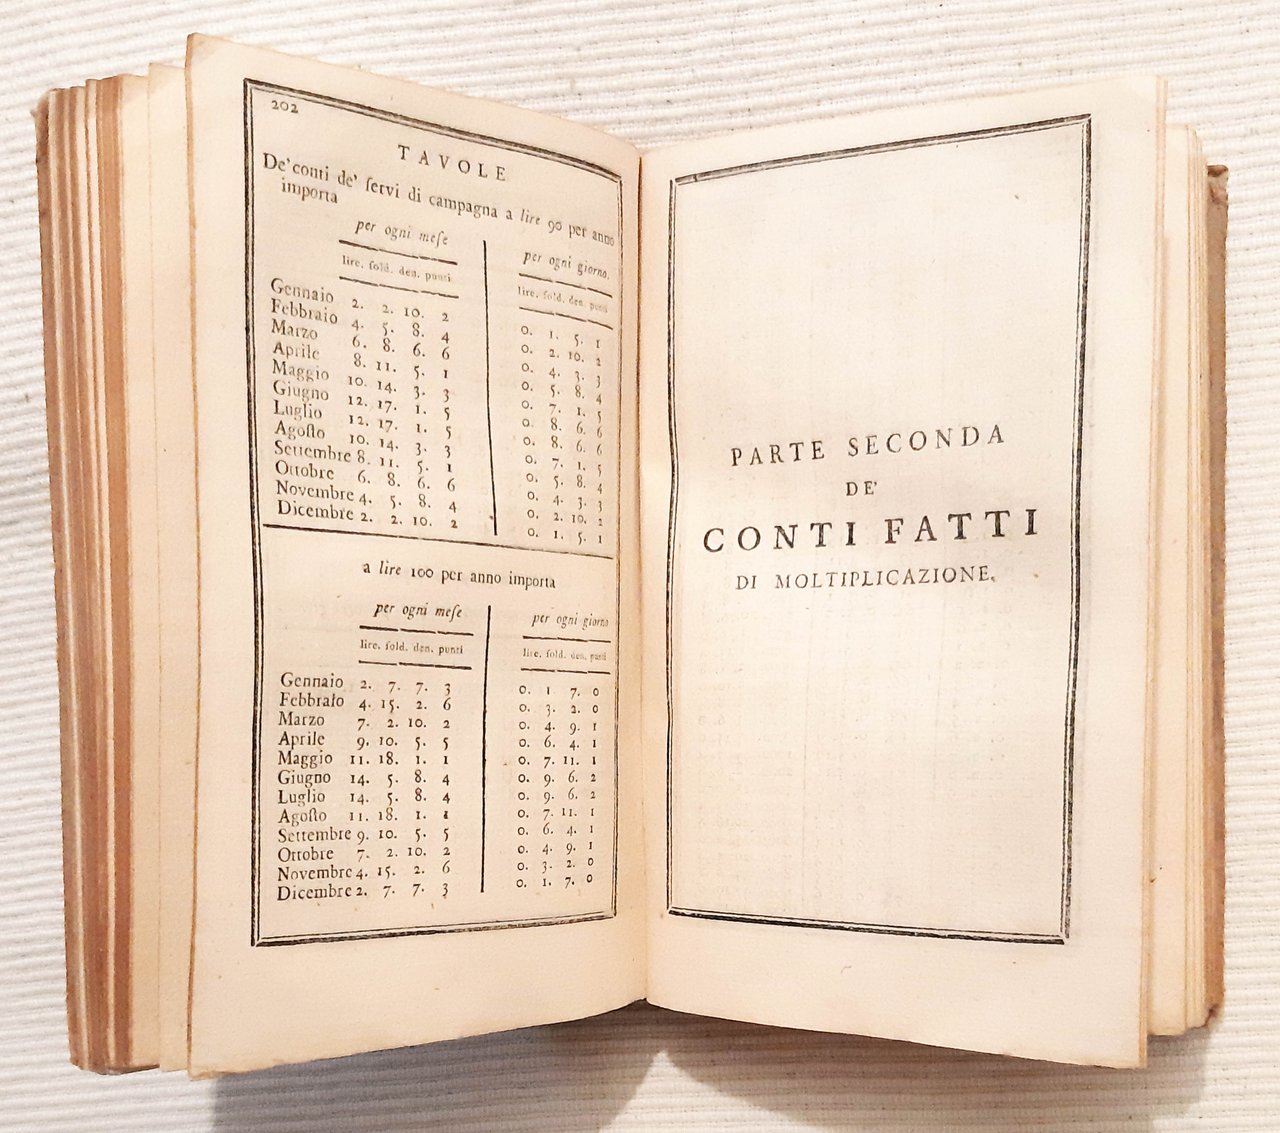 202
TAVOLE
De' conti de' ſervi di campagna a lire 90 per anno
importa
per ogni meſe per ogni giorno.
lire. ſold. den. punti lire. ſold. den. punti
Gennaio 2. 2. 10. 2 0. 1. 5. 1
Febbraio 4. 5. 8. 4 0. 2. 10. 2
Marzo 6. 8. 6. 6 0. 4. 3. 3
Aprile 8. 11. 5. 1 0. 5. 8. 4
Maggio 10. 14. 3. 3 0. 7. 1. 5
Giugno 12. 17. 1. 5 0. 8. 6. 6
Luglio 12. 17. 1. 5 0. 8. 6. 6
Agoſto 10. 14. 3. 3 0. 7. 1. 5
Settembre 8. 11. 5. 1 0. 5. 8. 4
Ottobre 6. 8. 6. 6 0. 4. 3. 3
Novembre 4. 5. 8. 4 0. 2. 10. 2
Dicembre 2. 2. 10. 2 0. 1. 5. 1
a lire 100 per anno importa
per ogni meſe per ogni giorno
lire. ſold. den. punti lire. ſold. den. punti
Gennaio 2. 7. 7. 3 0. 1 7. 0
Febbraio 4. 15. 2. 6 0. 3. 2. 0
Marzo 7. 2. 10. 2 0. 4. 9. 1
Aprile 9. 10. 5. 5 0. 6. 4. 1
Maggio 11. 18. 1. 1 0. 7. 11. 1
Giugno 14. 5. 8. 4 0. 9. 6. 2
Luglio 14. 5. 8. 4 0. 9. 6. 2
Agoſto 11. 18. 1. 1 0. 7. 11. 1
Settembre 9. 10. 5. 5 0. 6. 4. 1
Ottobre 7. 2. 10. 2 0. 4. 9. 1
Novembre 4. 15. 2. 6 0. 3. 2. 0
Dicembre 2. 7. 7. 3 0. 1. 7. 0
PARTE SECONDA
DE'
CONTI FATTI
DI MOLTIPLICAZIONE.